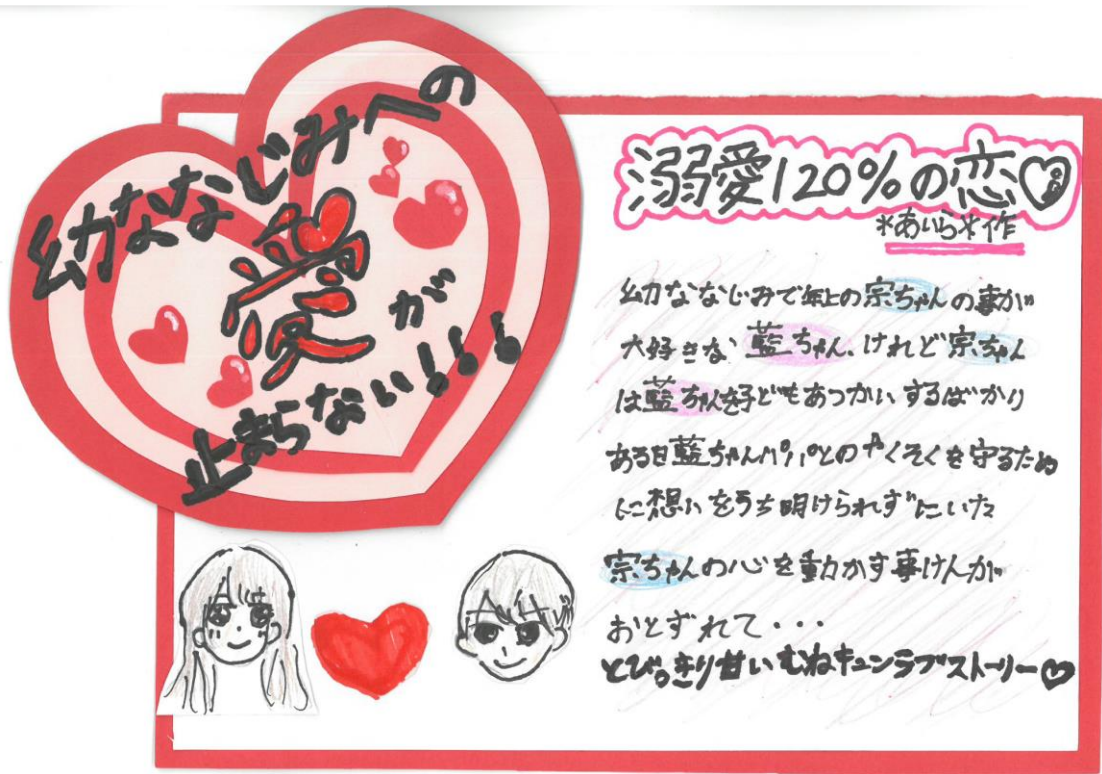 幼ななじみへの
愛が
止まらない!!!
溺愛120%の恋♡
*あいら*作
幼ななじみで年上の宗ちゃんの事が
大好きな藍ちゃん、けれど宗ちゃん
は藍ちゃんを子どもあつかいするばかり
ある日藍ちゃんパパとのやくそくを守るため
に想いをうち明けられずにいた
宗ちゃんの心を動かす事けんが
おとずれて・・・
とびっきり甘いむねキュンラブストーリー♡